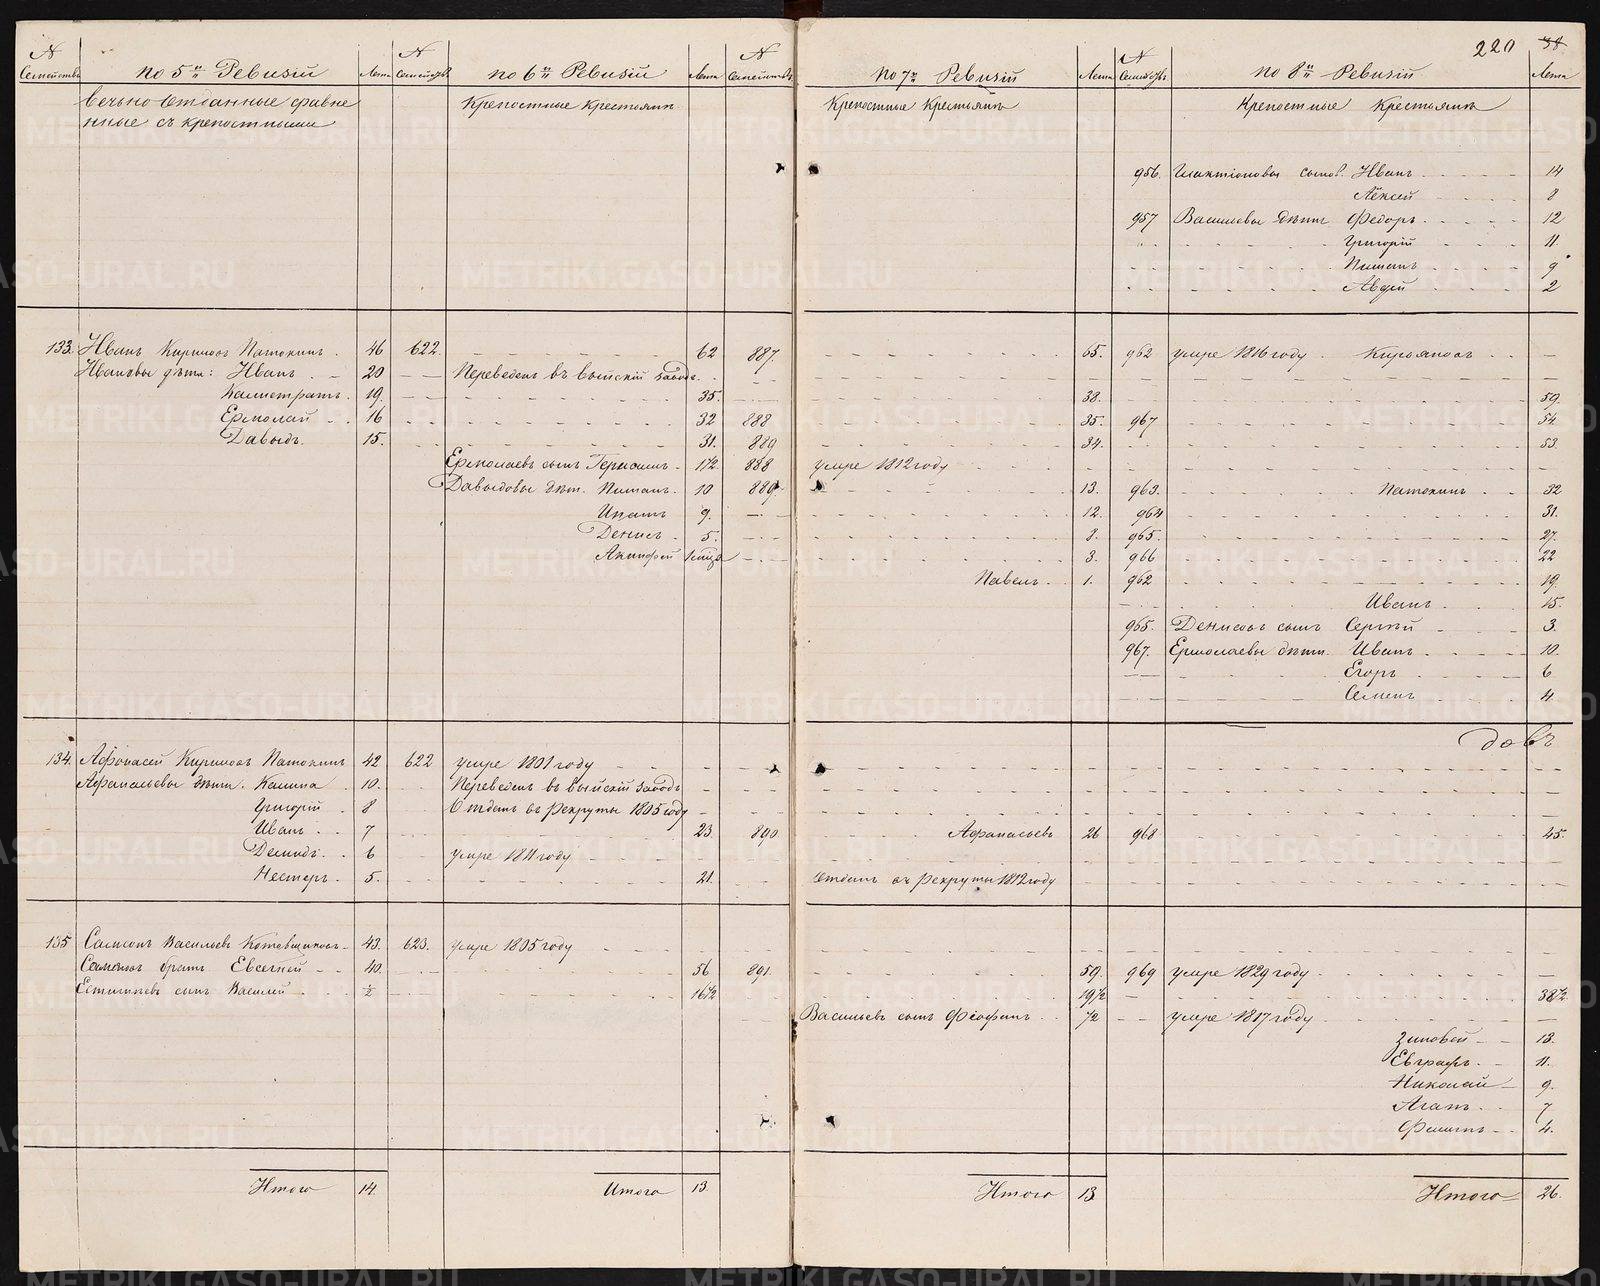 220 38
N Семействъ по 5й Ревизiи Лета N Семействъ по 6й Ревизiи Лета N Семействъ по 7й Ревизiи Лета N Семействъ по 8й Ревизiи Лета
Вечно Отданные сравне Крепостные Крестьяня Крепостные Крестьяня Крепостные Крестьяня
нные съ крепостными
956. сынов. Иванъ 14
Алексей 8
957 Васильевы дети Федоръ 12
Григорiй 11.
Пиманъ 9
Авдей 2
133. Иванъ Кириловъ Патокинъ 46 622. 62 887. 65. 962 умре 1816 году
Ивановы дети: Иванъ 20 Переведенъ въ Выйскiй заводъ
Калистратъ 19. 35. 38. 59.
Ермолай 16 32 888 35. 967 54.
Давыдъ 15. 31. 889 34. 53.
Ермолаевъ сынъ Герасимъ 1 1/2. 888 умре 1812 году
Давыдовы дет. Пиманъ 10 889. 13. 963. Патокинъ 32
Ипатъ 9. 12. 964 31.
Денисъ 5. 8. 965. 27.
Акинфей 3. 966 22
Павелъ 1. 962 19.
Иванъ 15.
965. Денисовъ сынъ Сергей 3.
967. Ермолаевы дети Иванъ 10.
Егоръ 6
Семенъ 4
134. Афонасей Кириловъ Патокинъ 42 622 умре 1801 году
Афанасьевы дети. Калина 10. Переведенъ въ Выйскiй заводъ
Григорiй 8 Отданъ въ Рекруты 1805 году
Иванъ 7 23. 890 Афанасьевъ 26 968 45.
Демидъ 6 умре 1811 году
Нестеръ 5. 21. Отданъ въ Рекруты 1812 году
135 Самсонъ Васильевъ Котевщиковъ 43. 623. умре 1805 году
брать Евсегней 40. 56 891. 59. 969 умре 1829 году
сынъ Василей 1/2 16 1/2 19 1/2 38 1/2
Васильевъ сынъ Феофанъ 1/2 умре 1817 году
Зиновей 13.
Евграфъ 11.
Николай 9.
Агапъ 7
Филипъ 4.
Итого 14. Итого 13. Итого 13 Итого 26.
METRIKI.GASO-URAL.RU